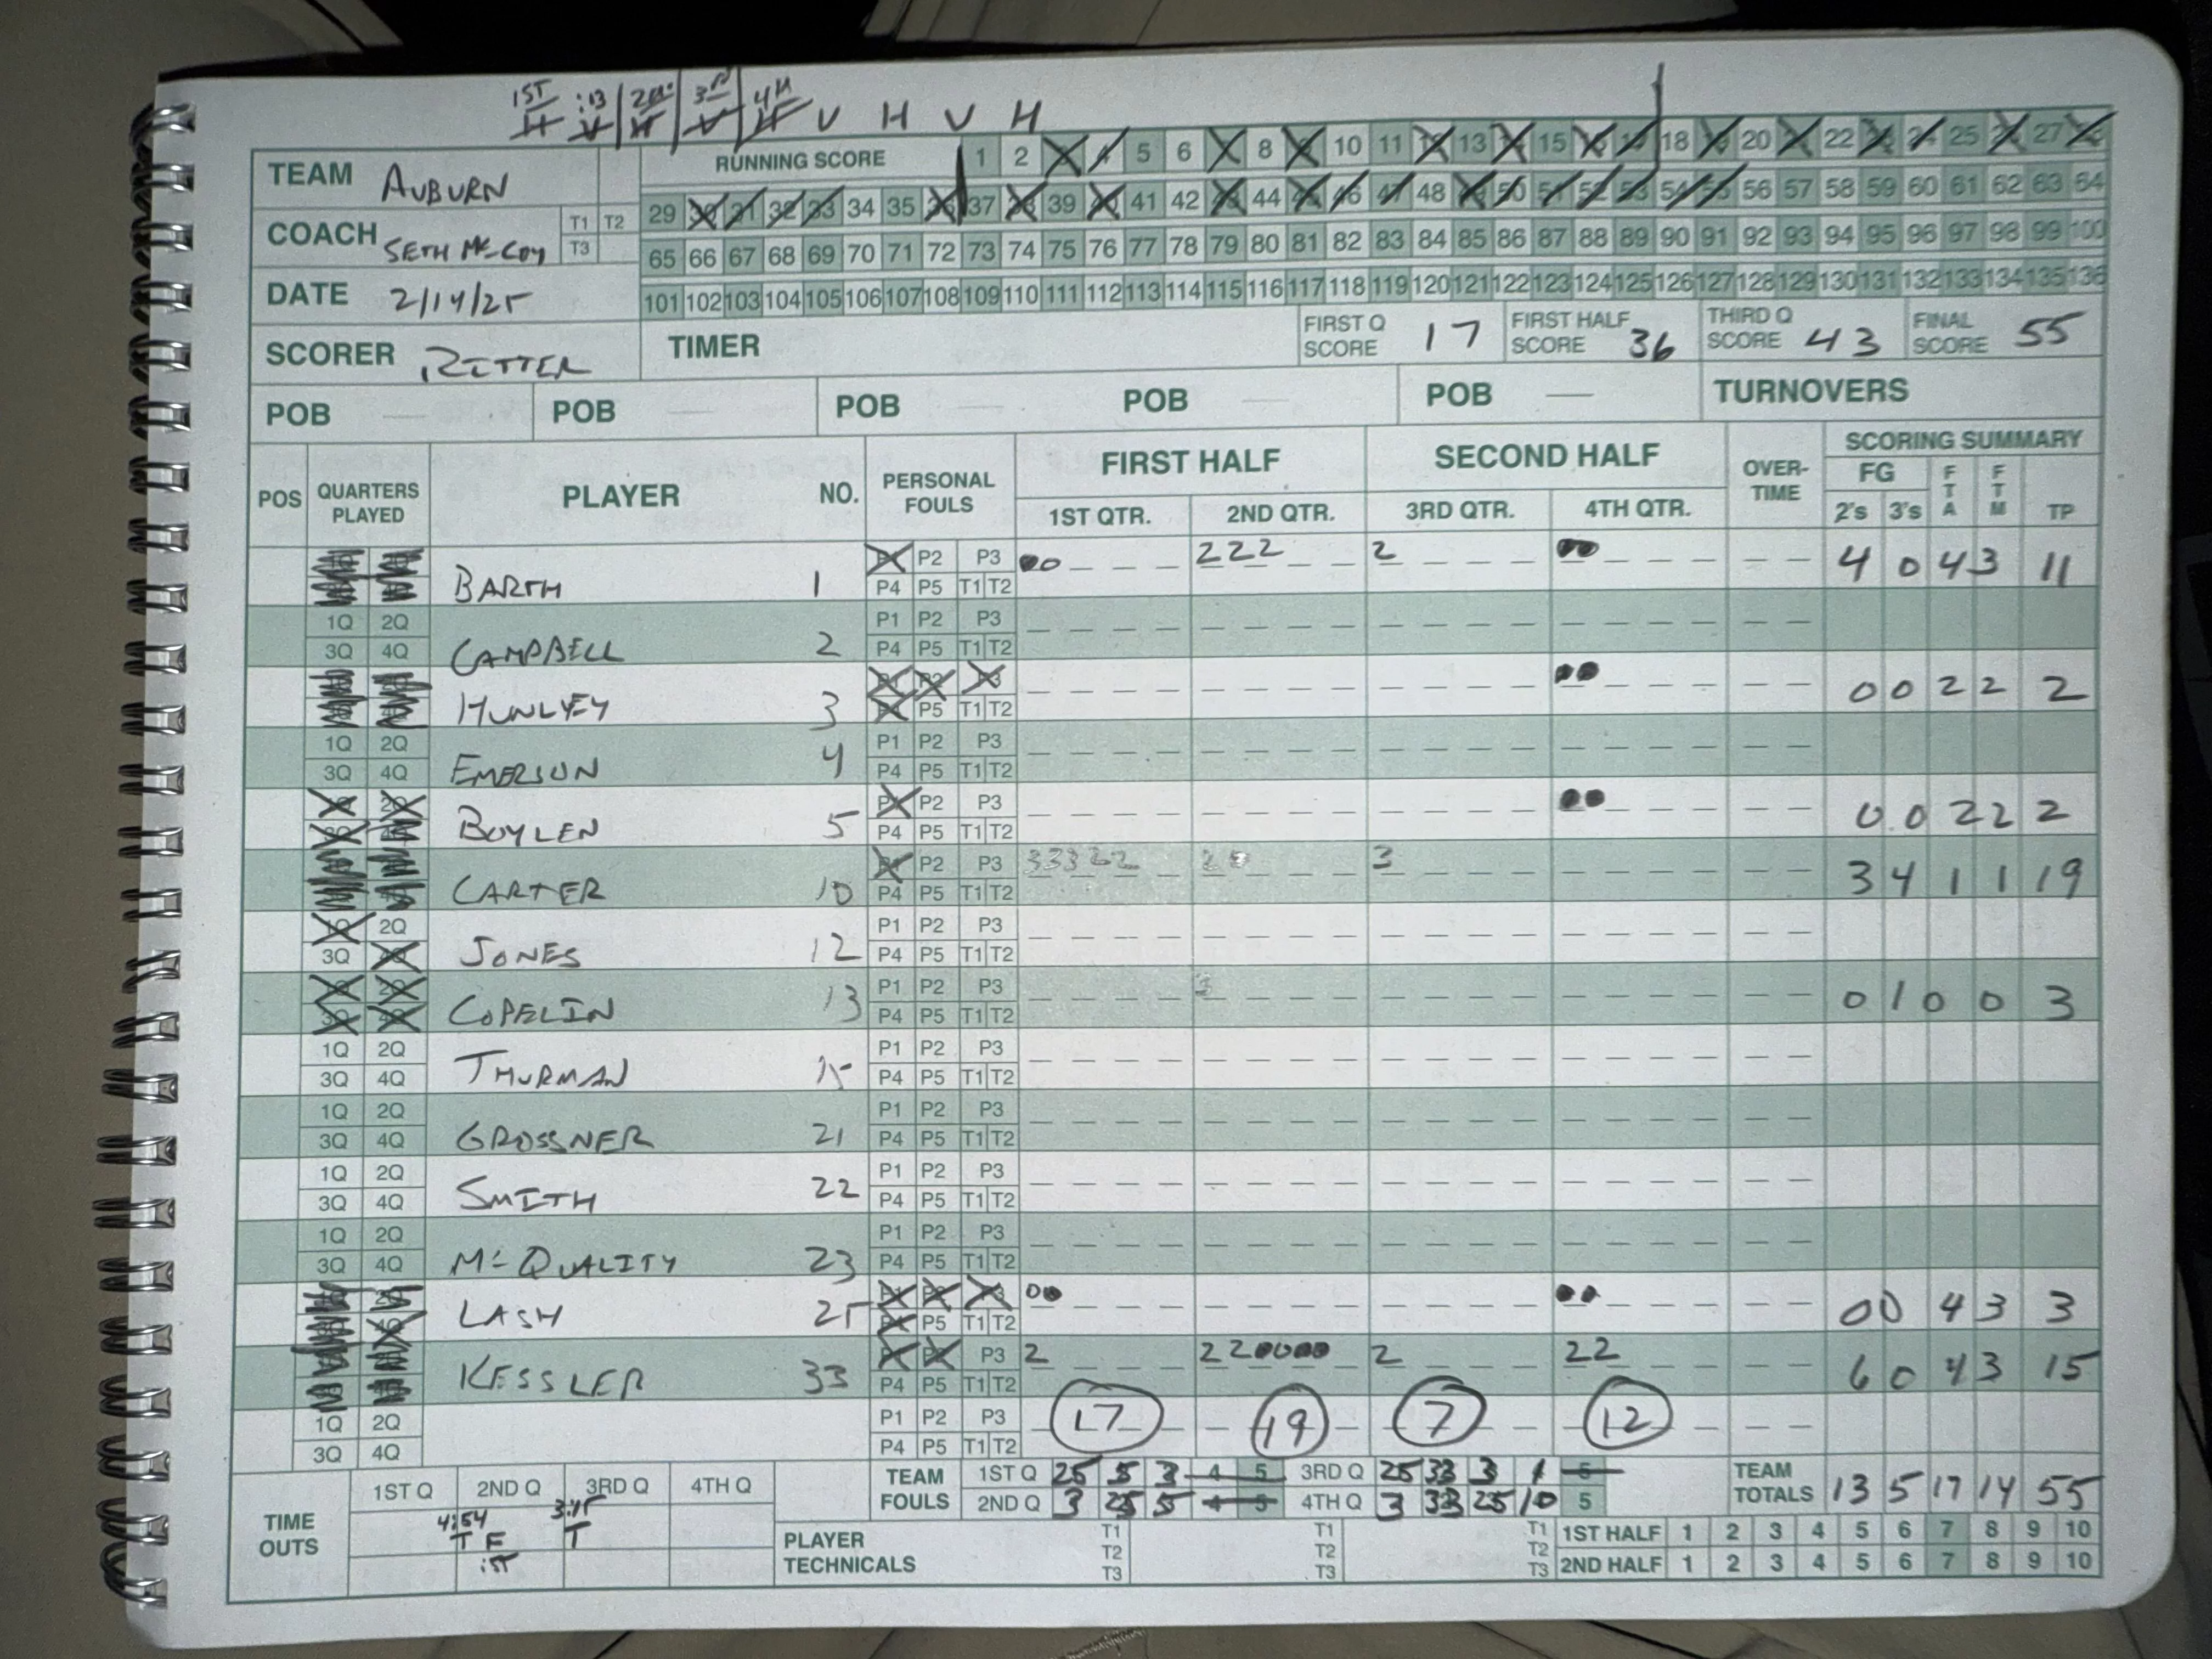 1ST :13 2ND 3RD 4TH
H V H V H V H V H
TEAM AUBURN
RUNNING SCORE 1 2 3 4 5 6 7 8 9 10 11 12 13 14 15 16 17 18 19 20 21 22 23 24 25 26 27 28
29 30 31 32 33 34 35 36 37 38 39 40 41 42 43 44 45 46 47 48 49 50 51 52 53 54 55 56 57 58 59 60 61 62 63 64
COACH SETH McCOY T1 T2 T3
65 66 67 68 69 70 71 72 73 74 75 76 77 78 79 80 81 82 83 84 85 86 87 88 89 90 91 92 93 94 95 96 97 98 99 100
DATE 2/14/25
101 102 103 104 105 106 107 108 109 110 111 112 113 114 115 116 117 118 119 120 121 122 123 124 125 126 127 128 129 130 131 132 133 134 135 136
SCORER RITTER TIMER FIRST Q SCORE 17 FIRST HALF SCORE 36 THIRD Q SCORE 43 FINAL SCORE 55
POB — POB — POB — POB — POB — TURNOVERS
POS QUARTERS PLAYED PLAYER NO. PERSONAL FOULS FIRST HALF SECOND HALF OVER-TIME SCORING SUMMARY
1ST QTR. 2ND QTR. 3RD QTR. 4TH QTR. FG 2's 3's FTA FTM TP
BARTH 1 P1 P2 P3 222 2 4 0 4 3 11
P4 P5 T1 T2
1Q 2Q CAMPBELL 2 P1 P2 P3
3Q 4Q P4 P5 T1 T2
HUNLEY 3 P1 P2 P3 0 0 2 2 2
P4 P5 T1 T2
1Q 2Q EMERSON 4 P1 P2 P3
3Q 4Q P4 P5 T1 T2
1Q 2Q BOYLEN 5 P1 P2 P3 0 0 2 2 2
3Q 4Q P4 P5 T1 T2
CARTER 10 P1 P2 P3 33322 2 3 3 4 1 1 19
P4 P5 T1 T2
1Q 2Q JONES 12 P1 P2 P3
3Q 4Q P4 P5 T1 T2
1Q 2Q COPELIN 13 P1 P2 P3 3 0 1 0 0 3
3Q 4Q P4 P5 T1 T2
1Q 2Q THURMAN 15 P1 P2 P3
3Q 4Q P4 P5 T1 T2
1Q 2Q GROSSNER 21 P1 P2 P3
3Q 4Q P4 P5 T1 T2
1Q 2Q SMITH 22 P1 P2 P3
3Q 4Q P4 P5 T1 T2
1Q 2Q McQUALITY 23 P1 P2 P3
3Q 4Q P4 P5 T1 T2
LASH 25 P1 P2 P3 0 0 4 3 3
P4 P5 T1 T2
KESSLER 33 P1 P2 P3 2 22 2 22 6 0 4 3 15
P4 P5 T1 T2
1Q 2Q P1 P2 P3 17 19 7 12
3Q 4Q P4 P5 T1 T2
TIME OUTS 1ST Q 2ND Q 3RD Q 4TH Q
4:54 3:15
T F T
:15
TEAM FOULS 1ST Q 25 5 3 4 5 3RD Q 25 33 3 1 5
2ND Q 3 25 5 4 5 4TH Q 3 33 25 10 5
TEAM TOTALS 13 5 17 14 55
PLAYER TECHNICALS T1 T2 T3 T1 T2 T3 T1 T2 T3
1ST HALF 1 2 3 4 5 6 7 8 9 10
2ND HALF 1 2 3 4 5 6 7 8 9 10